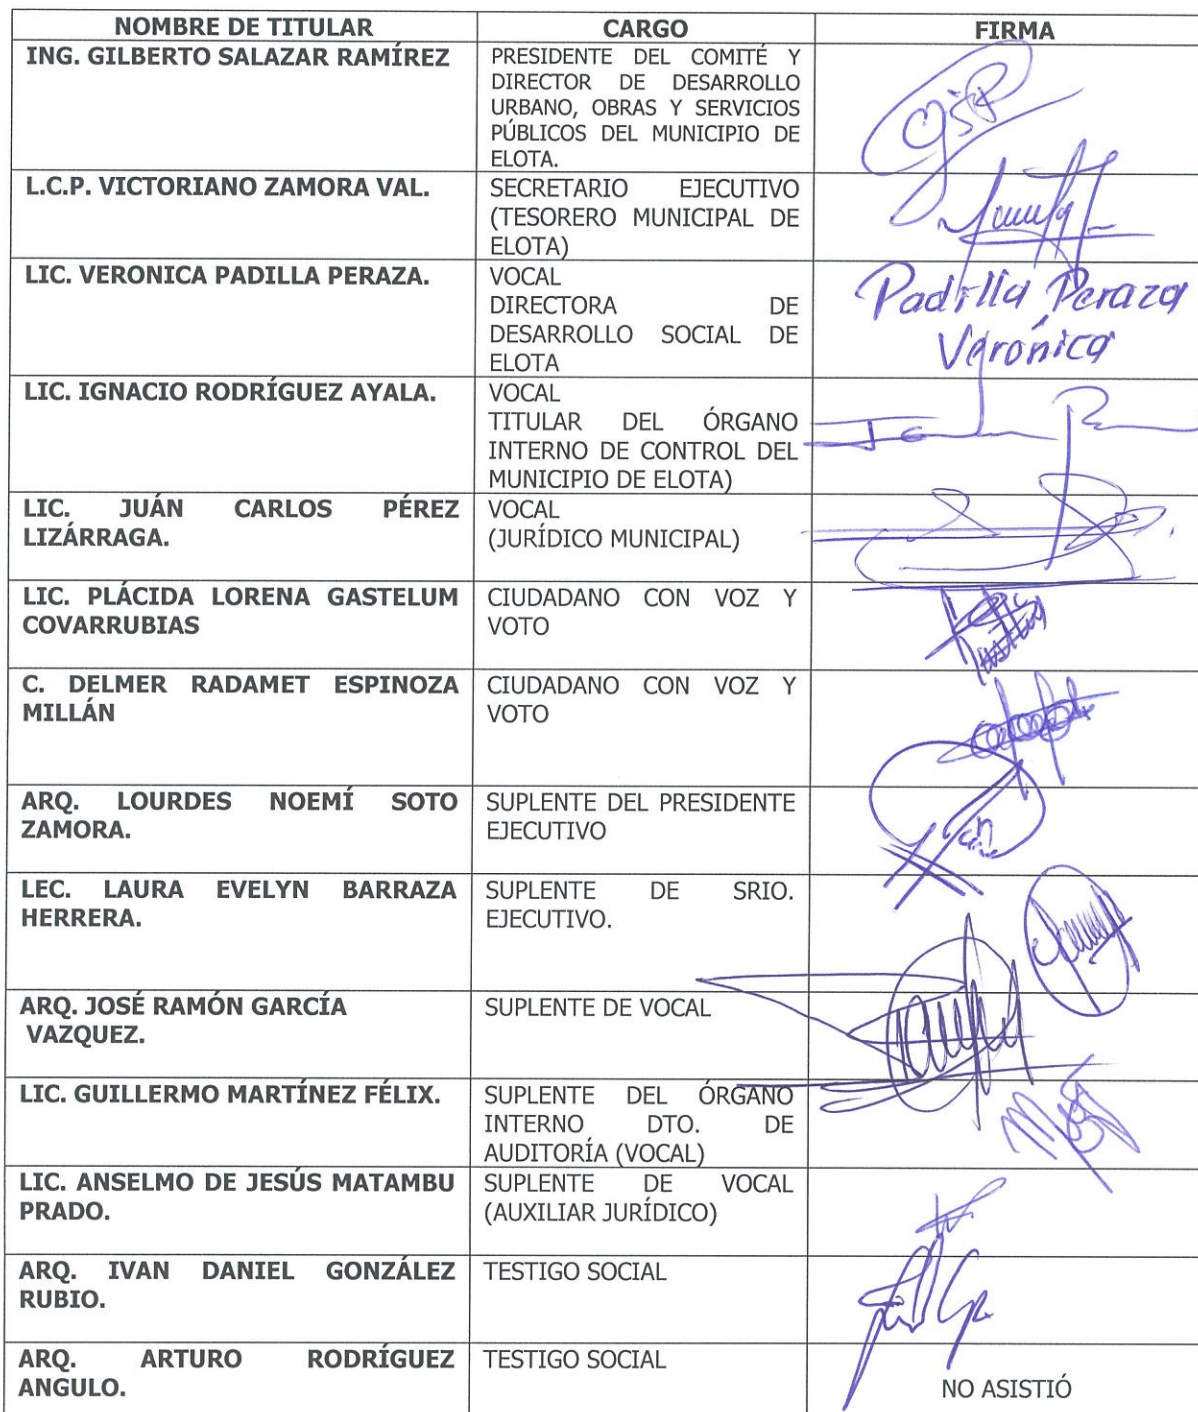 NOMBRE DE TITULAR CARGO FIRMA
ING. GILBERTO SALAZAR RAMÍREZ
PRESIDENTE DEL COMITÉ Y
DIRECTOR DE DESARROLLO
URBANO, OBRAS Y SERVICIOS
PÚBLICOS DEL MUNICIPIO DE
ELOTA.
L.C.P. VICTORIANO ZAMORA VAL.
SECRETARIO EJECUTIVO
(TESORERO MUNICIPAL DE
ELOTA)
LIC. VERONICA PADILLA PERAZA.
VOCAL
DIRECTORA DE
DESARROLLO SOCIAL DE
ELOTA
Padilla Peraza
Verónica
LIC. IGNACIO RODRÍGUEZ AYALA.
VOCAL
TITULAR DEL ÓRGANO
INTERNO DE CONTROL DEL
MUNICIPIO DE ELOTA)
LIC. JUÁN CARLOS PÉREZ
LIZÁRRAGA.
VOCAL
(JURÍDICO MUNICIPAL)
LIC. PLÁCIDA LORENA GASTELUM
COVARRUBIAS
CIUDADANO CON VOZ Y
VOTO
C. DELMER RADAMET ESPINOZA
MILLÁN
CIUDADANO CON VOZ Y
VOTO
ARQ. LOURDES NOEMÍ SOTO
ZAMORA.
SUPLENTE DEL PRESIDENTE
EJECUTIVO
LEC. LAURA EVELYN BARRAZA
HERRERA.
SUPLENTE DE SRIO.
EJECUTIVO.
ARQ. JOSÉ RAMÓN GARCÍA
VAZQUEZ.
SUPLENTE DE VOCAL
LIC. GUILLERMO MARTÍNEZ FÉLIX.
SUPLENTE DEL ÓRGANO
INTERNO DTO. DE
AUDITORÍA (VOCAL)
LIC. ANSELMO DE JESÚS MATAMBU
PRADO.
SUPLENTE DE VOCAL
(AUXILIAR JURÍDICO)
ARQ. IVAN DANIEL GONZÁLEZ
RUBIO.
TESTIGO SOCIAL
ARQ. ARTURO RODRÍGUEZ
ANGULO.
TESTIGO SOCIAL
NO ASISTIÓ